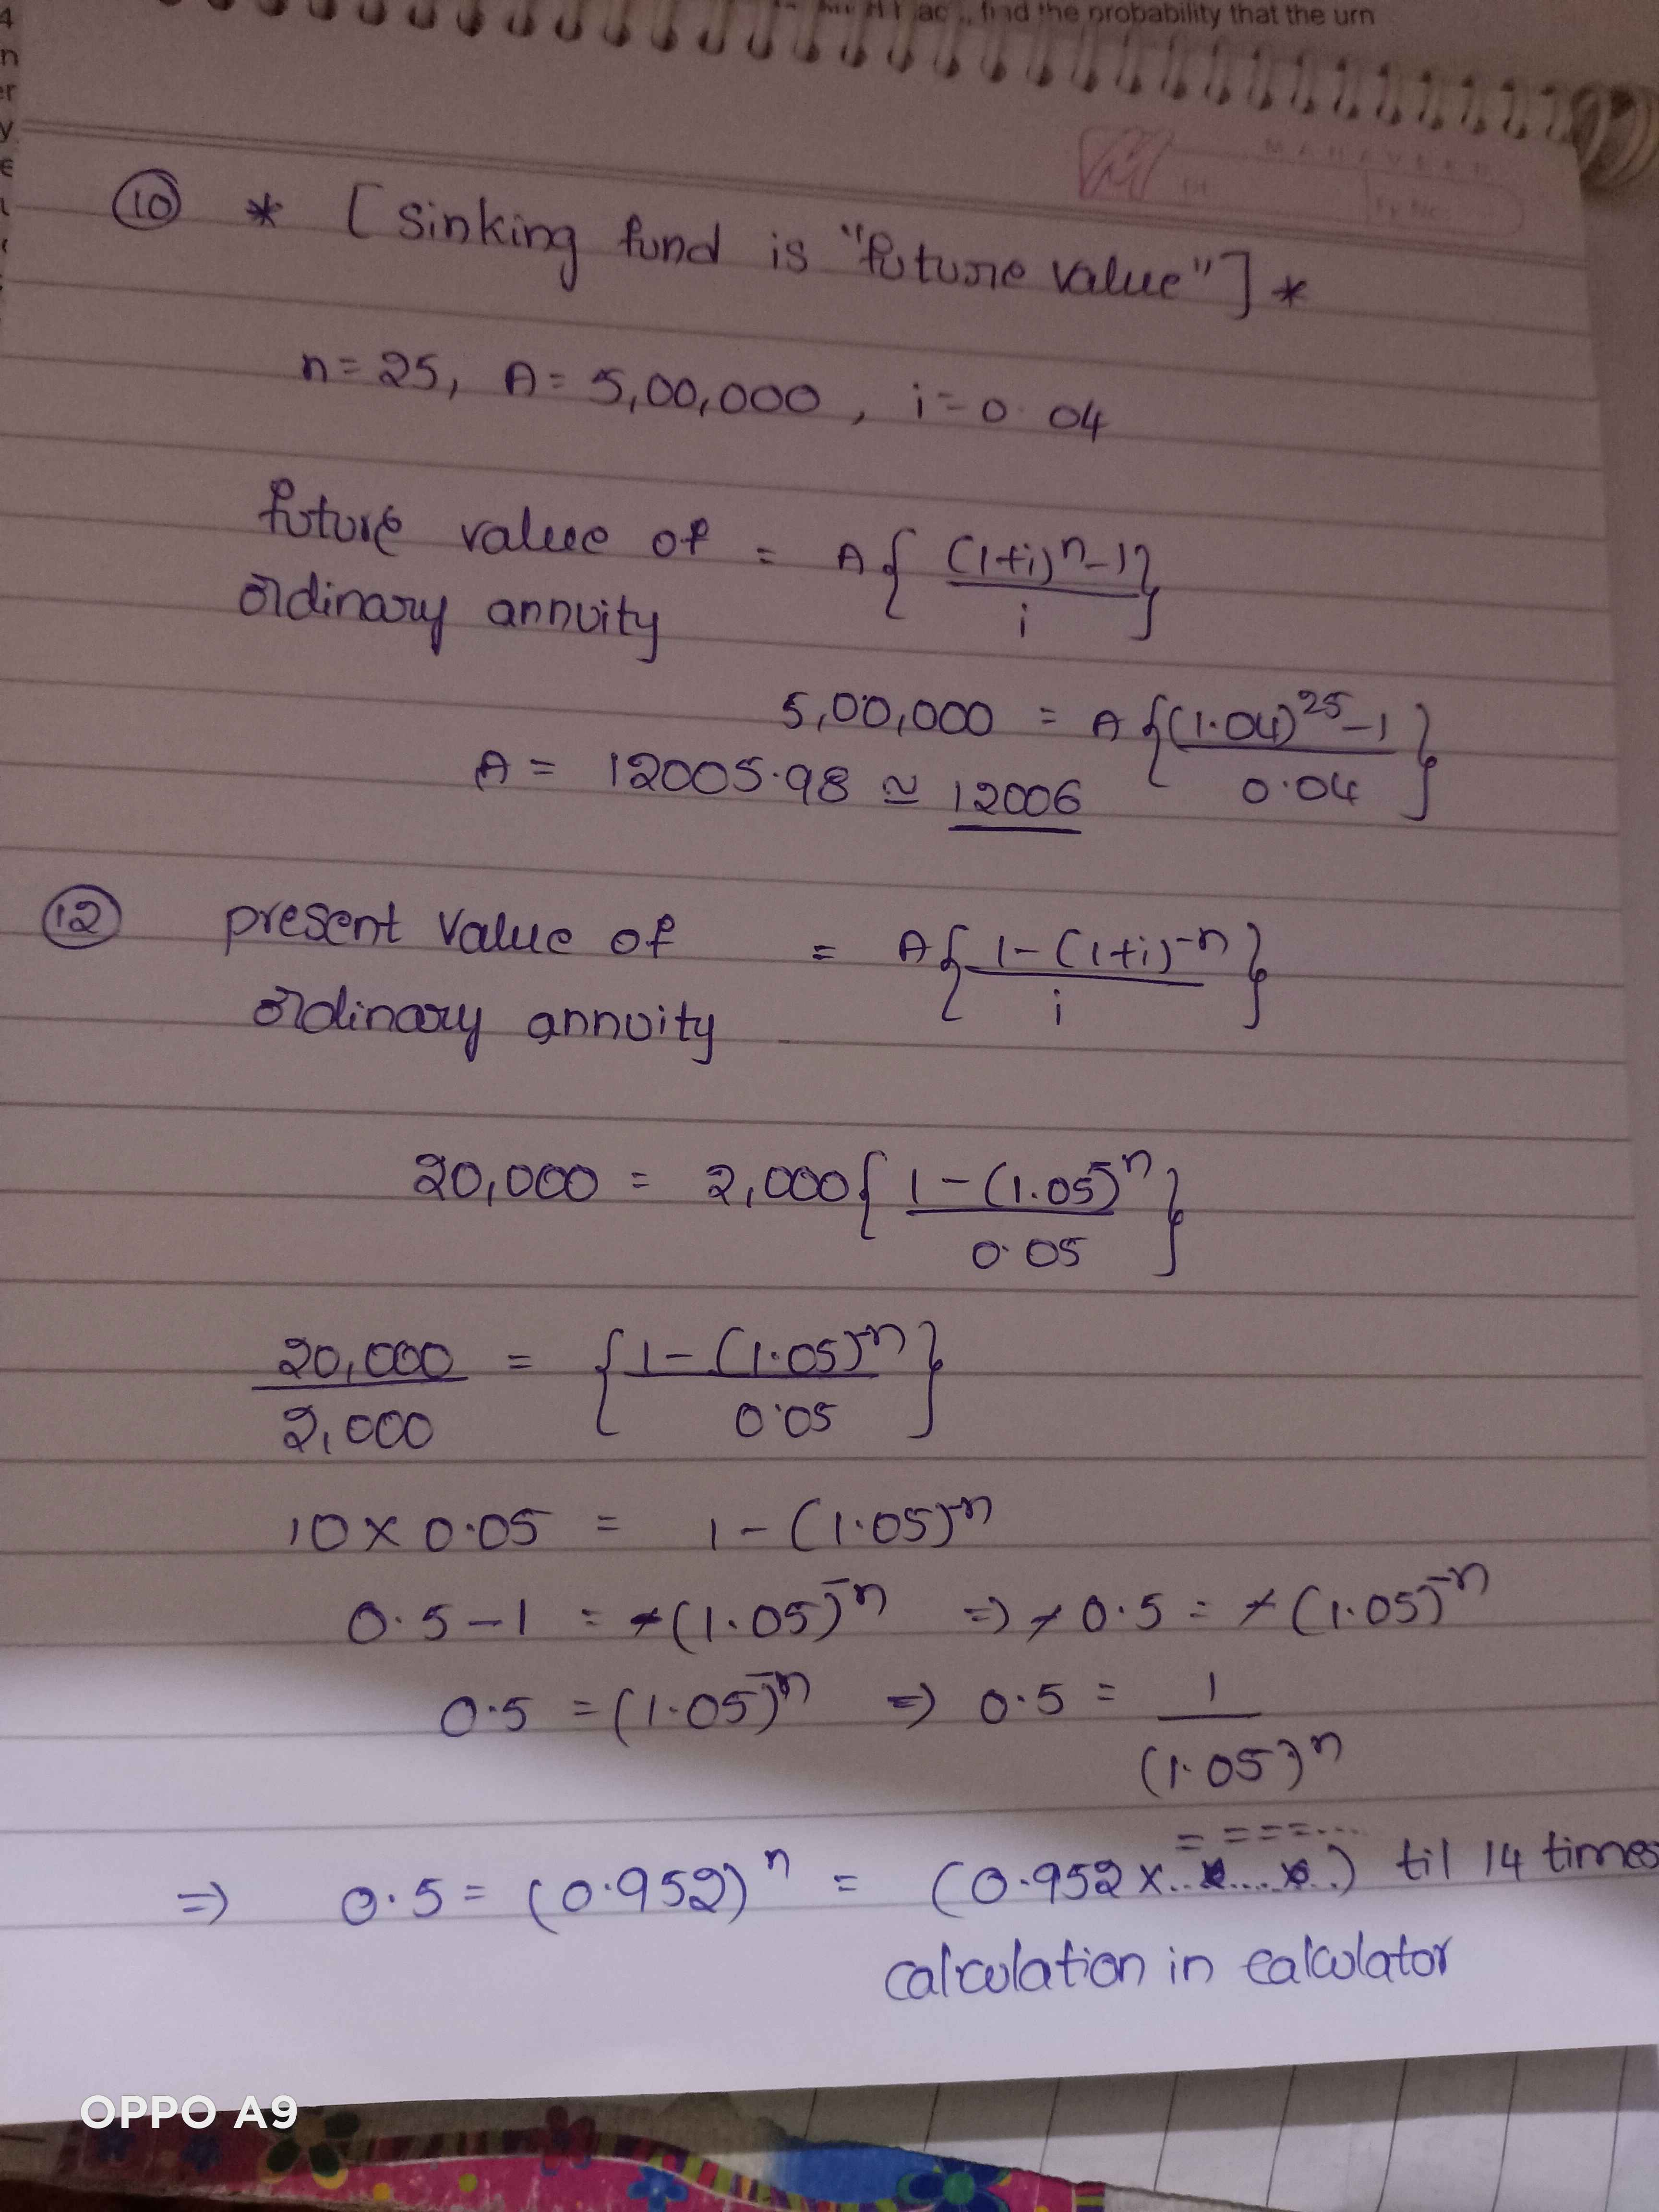 find the probability that the urn
MAHAVEER
⑩ * [sinking fund is "future value"] *
n=25, A= 5,00,000, i=0.04
future value of ordinary annuity = A{ (1+i)^n-1 / i }
5,00,000 = A{ (1.04)^25-1 / 0.04 }
A = 12005.98 ≃ 12006
⑫ present value of ordinary annuity = A{ 1-(1+i)^-n / i }
20,000 = 2,000{ 1-(1.05)^-n / 0.05 }
20,000 / 2,000 = { 1-(1.05)^-n / 0.05 }
10 × 0.05 = 1-(1.05)^-n
0.5-1 = -(1.05)^-n => -0.5 = -(1.05)^-n
0.5 = (1.05)^-n => 0.5 = 1 / (1.05)^n
= = = = ...
=> 0.5 = (0.952)^n = (0.952 × ........) til 14 times
calculation in calculator
OPPO A9